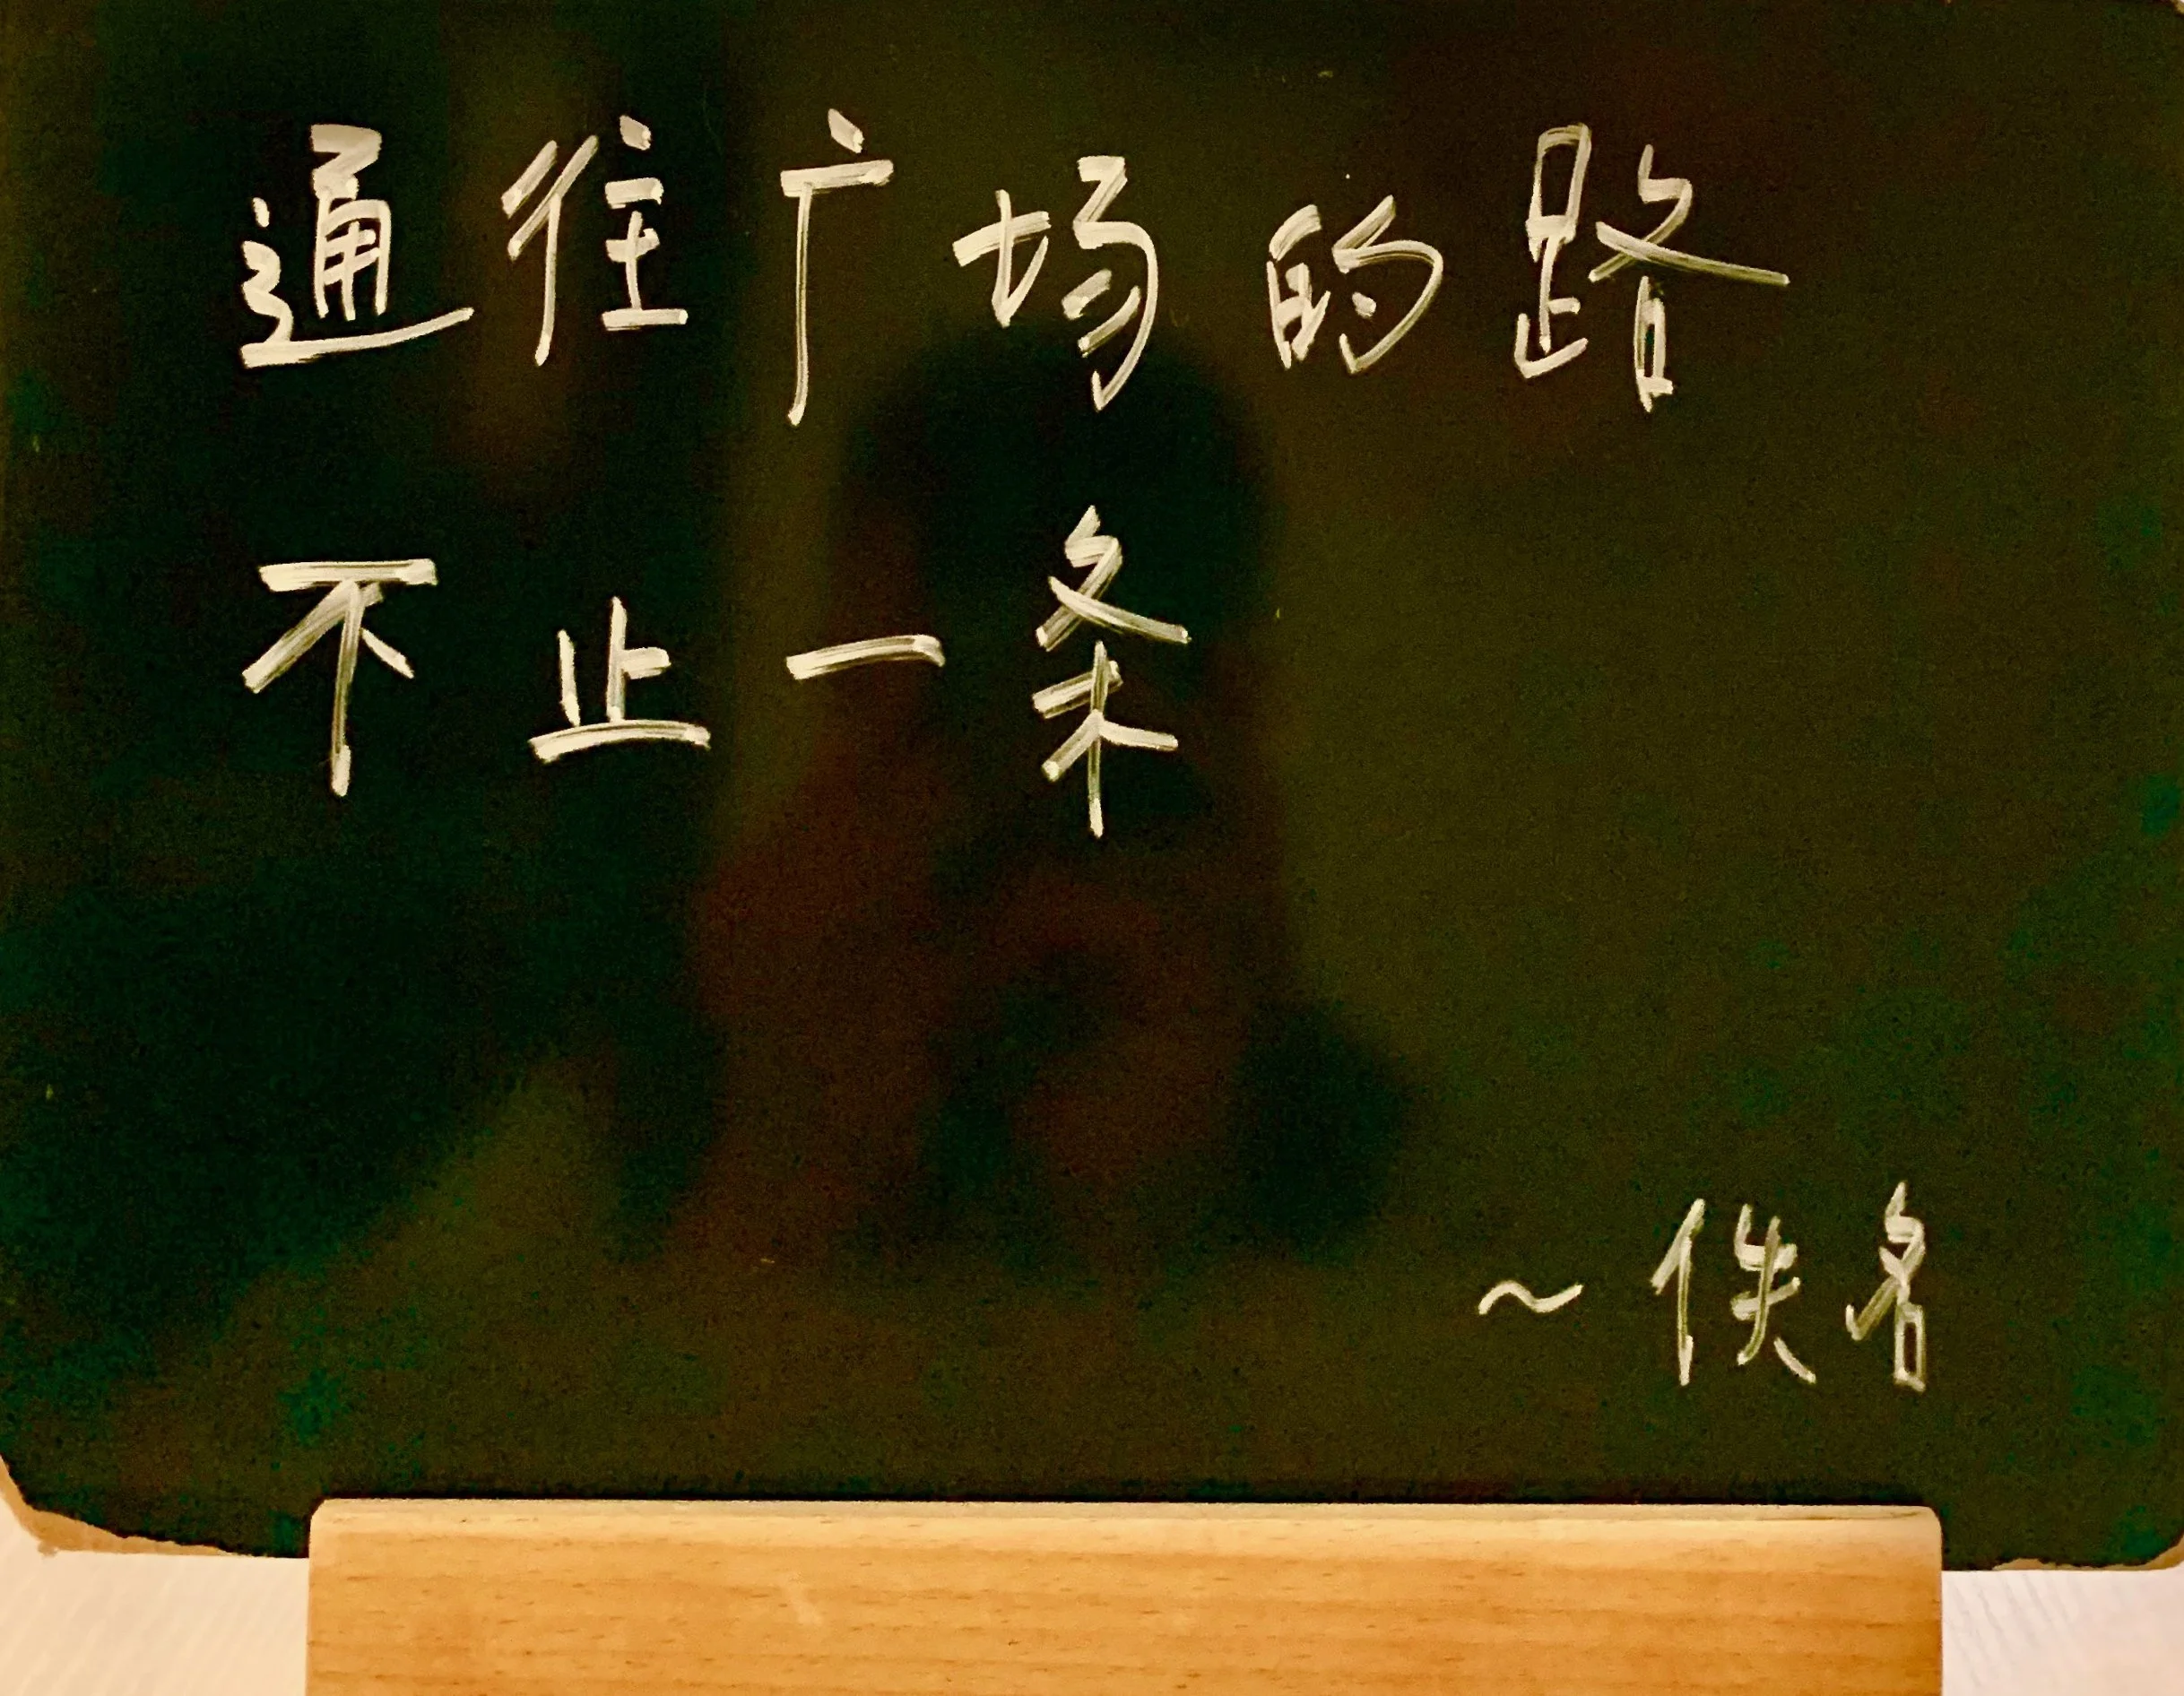 通往广场的路
不止一条
~佚名